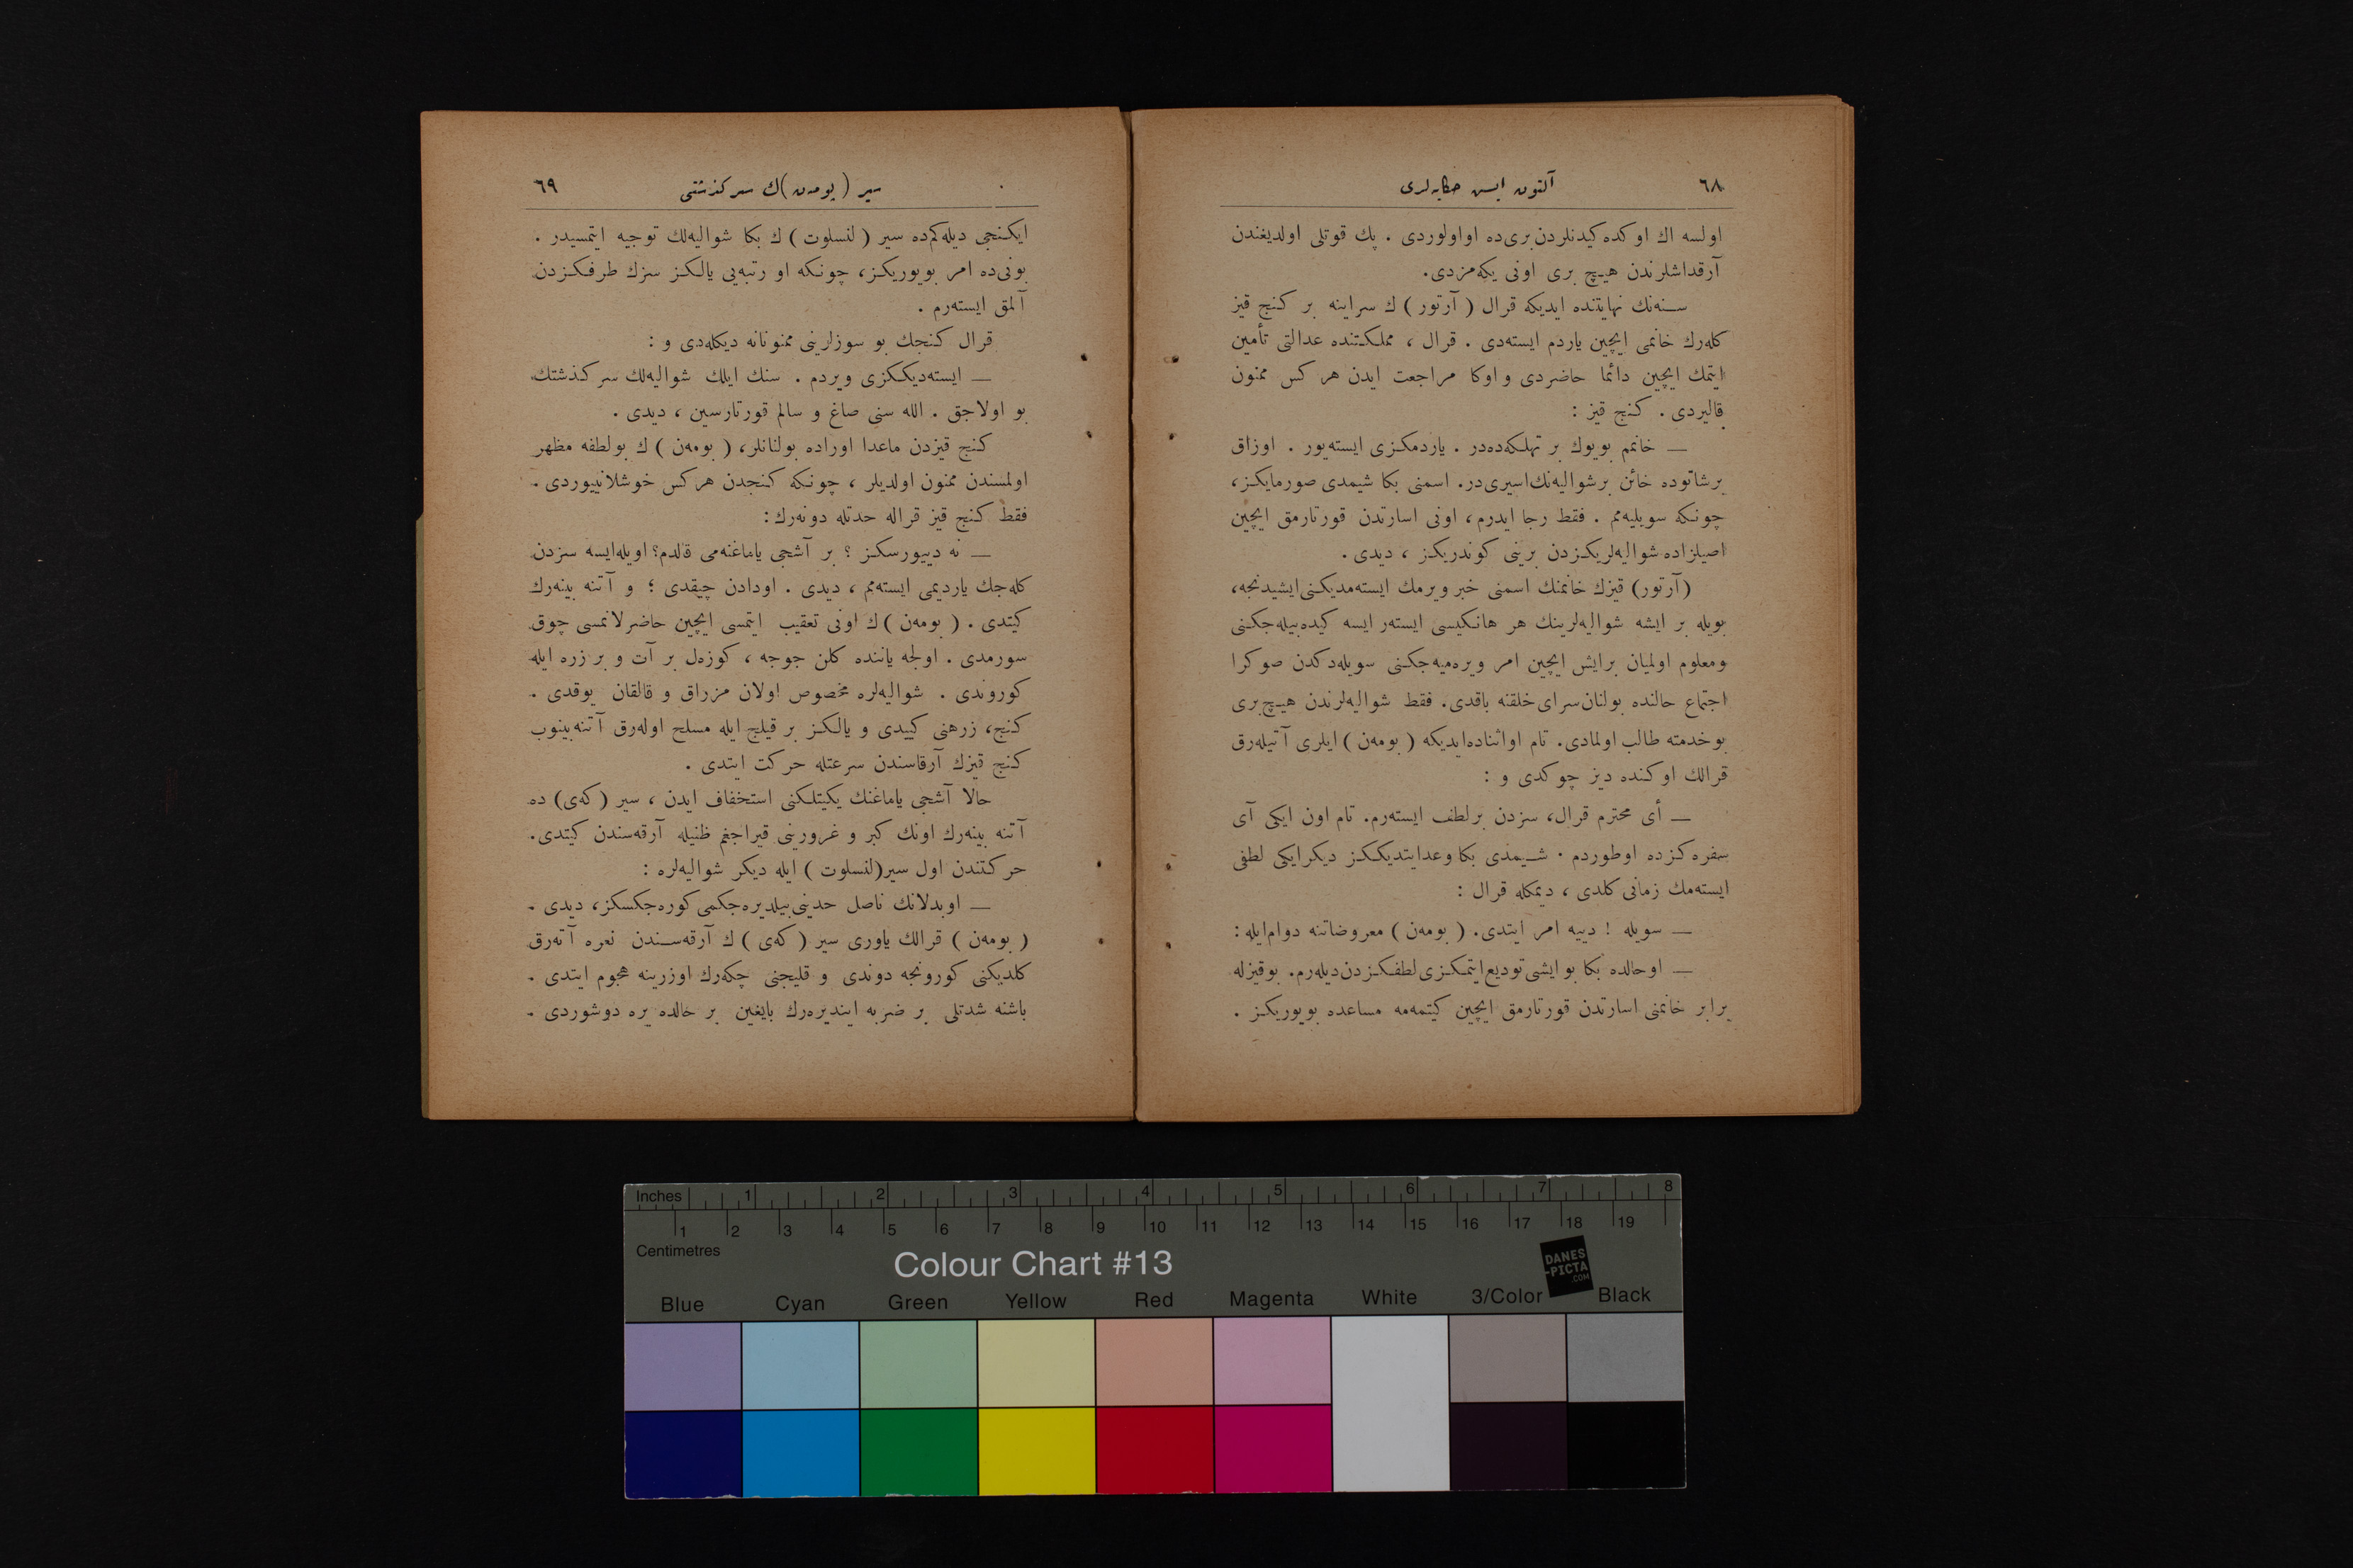 ٦٨
آلتون ایس حکایه‌لری
اولسه اك اوكده كیدنلردن بری‌ده اواولوردی . پك قوتلی اولدیغندن
آرقداشلرندن هیچ بری اونی یكه‌مزدی.
سنه‌نك نهایتنده ایدیكه قرال ( آرتور ) ك سراینه بر كنج قیز
كله‌رك خانمی ایچین یاردم ایسته‌دی . قرال ، مملكتنده عدالتی تأمین
ایتمك ایچین دائما حاضردی و اوكا مراجعت ایدن هر كس ممنون
قالیردی . كنج قیز :
— خانمم بویوك بر تهلكه‌ده‌در . یاردمكزی ایسته‌یور . اوزاق
برشاتوده خائن برشوالیه‌نك‌اسیری‌در. اسمنی بكا شیمدی صورمایكز،
چونكه سویلیه‌مم . فقط رجا ایدرم، اونی اسارتدن قورتارمق ایچین
اصیلزاده شوالیه‌لریكزدن برینی كوندریكز ، دیدی .
(آرتور) قیزك خانمنك اسمنی خبر ویرمك ایسته‌مدیكنی‌ایشیدنجه،
بویله بر ایشه شوالیه‌لرینك هر هانكیسی ایستەر ایسه كیده‌بیله‌جكنی
ومعلوم اولمیان برایش ایچین امر ویره‌میه‌جكنی سویله‌دكدن صوكرا
اجتماع حالنده بولنان‌سرای‌خلقنه باقدی. فقط شوالیه‌لرندن هیچ‌بری
بوخدمته طالب اولمادی. تام اواثناده‌ایدیكه ( بومه‌ن ) ایلری آتیله‌رق
قرالك اوكنده دیز چوكدی و :
— أی محترم قرال، سزدن برلطف ایسته‌رم. تام اون ایكی آی
سفره‌كزده اوطوردم . شیمدی بكا وعدایتدیككز دیكرایكی لطفی
ایسته‌مك زمانی كلدی ، دیمكله قرال :
— سویله ! دییه امر ایتدی. ( بومه‌ن ) معروضاتنه دوام‌ایله :
— اوحالده بكا بوایشی‌تودیع‌ایتمكزی‌لطفكزدن‌دیله‌رم. بوقیزله
برابر خانمنی اسارتدن قورتارمق ایچین كیتمه‌مه مساعده بویوریكز .
سیر ( بومه‌ن )ك سركذشتی
٦٩
ایكنجی دیله‌كم‌ده سیر ( لنسلوت ) ك بكا شوالیه‌لك توجیه ایتمسیدر .
بونی‌ده امر بویوریكز، چونكه او رتبه‌یی یالكز سزك طرفكزدن
آلمق ایسته‌رم .
قرال كنجك بو سوزلرینی ممنونانه دیكله‌دی و :
— ایسته‌دیككزی ویردم . سنك ایلك شوالیه‌لك سركذشتك
بو اولاجق . الله سنی صاغ و سالم قورتارسین ، دیدی .
كنج قیزدن ماعدا اوراده بولنانلر، ( بومه‌ن ) ك بولطفه مظهر
اولمسندن ممنون اولدیلر ، چونكه كنجدن هركس خوشلانییوردی .
فقط كنج قیز قراله حدتله دونه‌رك :
— نه دییورسكز ؟ بر آشجی یاماغنه‌می قالدم؟ اویله‌ایسه سزدن
كله‌جك یاردیمی ایسته‌مم ، دیدی . اودادن چیقدی ؛ و آتنه بینه‌رك
كیتدی . ( بومه‌ن )ك اونی تعقیب ایتمسی ایچین حاضرلانمسی چوق
سورمدی . اولجه یاننده كلن جوجه ، كوزه‌ل بر آت و بر زره ایله
كوروندی . شوالیه‌لره مخصوص اولان مزراق و قالقان یوقدی .
كنج، زرهنی كییدی و یالكز بر قیلج ایله مسلح اوله‌رق آتنه‌بینوب
كنج قیزك آرقاسندن سرعتله حركت ایتدی .
حالا آشجی یاماغنك یكیتلكنی استخفاف ایدن ، سیر (كه‌ی) ده
آتنه بینه‌رك اونك كبر و غرورینی قیراجغم ظنیله آرقه‌سندن كیتدی.
حركتندن اول سیر(لنسلوت ) ایله دیكر شوالیه‌لره :
— اوبدلانك ناصل حدینی‌بیلدیره‌جكمی كوره‌جكسكز، دیدی .
( بومه‌ن ) قرالك یاوری سیر ( كه‌ی ) ك آرقه‌سندن نعره آته‌رق
كلدیكنی كورونجه دوندی و قلیجنی چكه‌رك اوزرینه هجوم ایتدی .
باشنه شدتلی بر ضربه ایندیره‌رك بایغین بر حالده یره دوشوردی .
Inches 1 2 3 4 5 6 7 8
1 2 3 4 5 6 7 8 9 10 11 12 13 14 15 16 17 18 19
Centimetres
Colour Chart #13
DANES
-PICTA
.COM
Blue Cyan Green Yellow Red Magenta White 3/Color Black